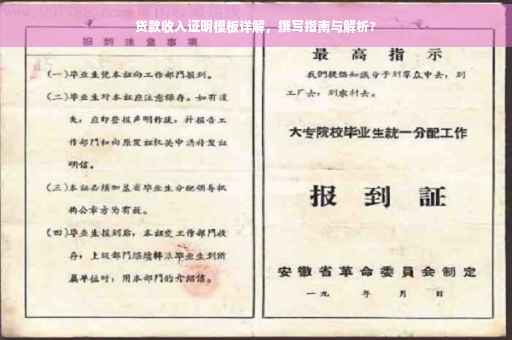 贷款收入证明模板详解，撰写指南与解析？
报到注意事项
(一)毕业生凭本证向工作部門报到。
(二)毕业生对本证应注意保存。如有遗
失，应即登报声明作废，并报告工
作部門和向原发证机关申請补发证
明信。
(三)本证必须加盖省毕业生分配领导机
构公章方为有效。
(四)毕业生报到后，本证交工作部門收
存；上级部門 毕业生到所
属单位时，用本部門的介绍信。
最高指示
我們提倡知识分子到羣众中去，到
工厂去，到农村去。
大专院校毕业生統一分配工作
报到证
安徽省革命委員会制定
一九 年 月 日